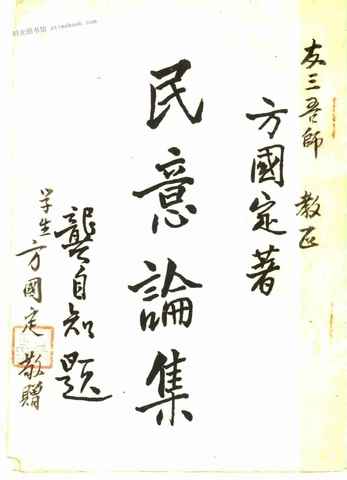 友三吾師 教正
方國定著
民意論集
龔自知題
学生方國定敬贈